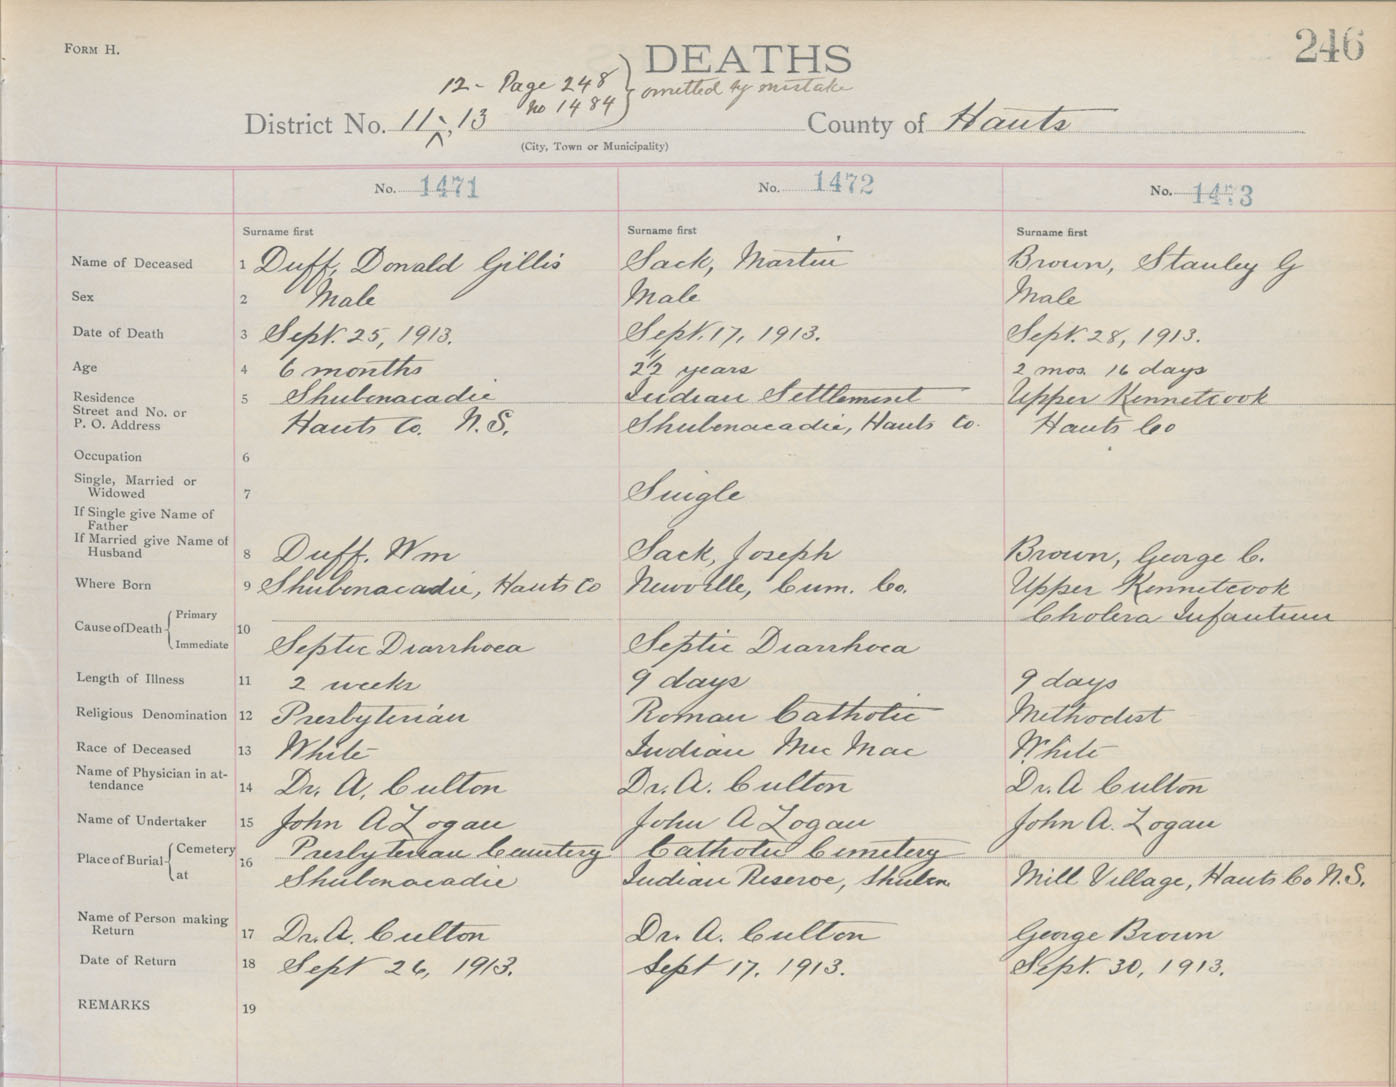 FORM H.
DEATHS
246
12 - Page 248
no 1484
omitted by mistake
District No. 11, 13
County of Hants
(City, Town or Municipality)
No. 1471
No. 1472
No. 1473
Surname first
Surname first
Surname first
Name of Deceased 1 Duff, Donald Gillis
Sack, Martin
Brown, Stanley G
Sex 2 Male
Male
Male
Date of Death 3 Sept. 25, 1913.
Sept. 17, 1913.
Sept. 28, 1913.
Age 4 6 months
years
2 mos. 16 days
Residence
Street and No. or
P. O. Address
5 Shubenacadie
Hants Co. N.S.
Indian Settlement
Shubenacadie, Hants Co.
Upper Kennetcook
Hants Co
Occupation 6
Single, Married or
Widowed
7
Single
If Single give Name of
Father
If Married give Name of
Husband
8 Duff, Wm
Sack, Joseph
Brown, George C.
Where Born 9 Shubenacadie, Hants Co
Newville, Cum. Co.
Upper Kennetcook
Cause of Death
Primary
Immediate
10
Septic Diarrhoea
Septic Diarrhoea
Cholera Infantum
Length of Illness 11 2 weeks
9 days
9 days
Religious Denomination 12 Presbyterian
Roman Catholic
Methodist
Race of Deceased 13 White
Indian Mic Mac
White
Name of Physician in at-
tendance
14 Dr. A. Culton
Dr. A. Culton
Dr. A Culton
Name of Undertaker 15 John A Logan
John A Logan
John A. Logan
Place of Burial
Cemetery
at
16 Presbyterian Cemetery
Shubenacadie
Catholic Cemetery
Indian Reserve, Shuben.
Mill Village, Hants Co N.S.
Name of Person making
Return
17 Dr. A. Culton
Dr. A. Culton
George Brown
Date of Return 18 Sept 26, 1913.
Sept 17, 1913.
Sept. 30, 1913.
REMARKS 19